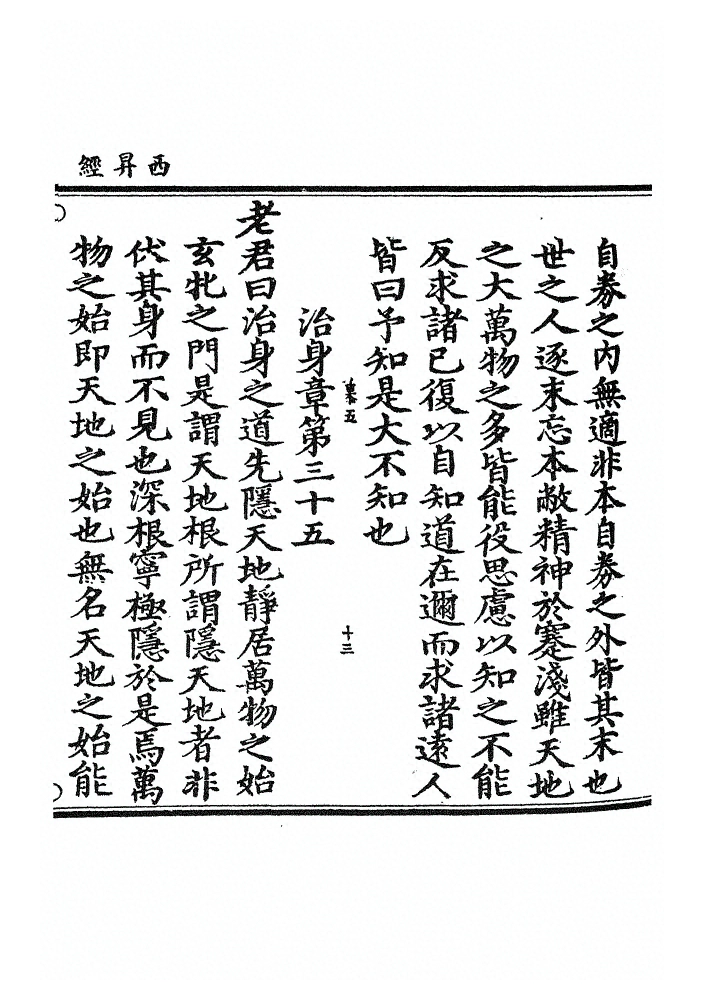 西昇經
自劵之內無適非本自劵之外皆其末也
世之人逐末忘本敝精神於蹇淺雖天地
之大萬物之多皆能役思慮以知之不能
反求諸已復以自知道在邇而求諸遠人
皆曰予知是大不知也
慕五
十三
治身章第三十五
老君曰治身之道先隱天地靜居萬物之始
玄牝之門是謂天地根所謂隱天地者非
伏其身而不見也深根寧極隱於是焉萬
物之始即天地之始也無名天地之始能